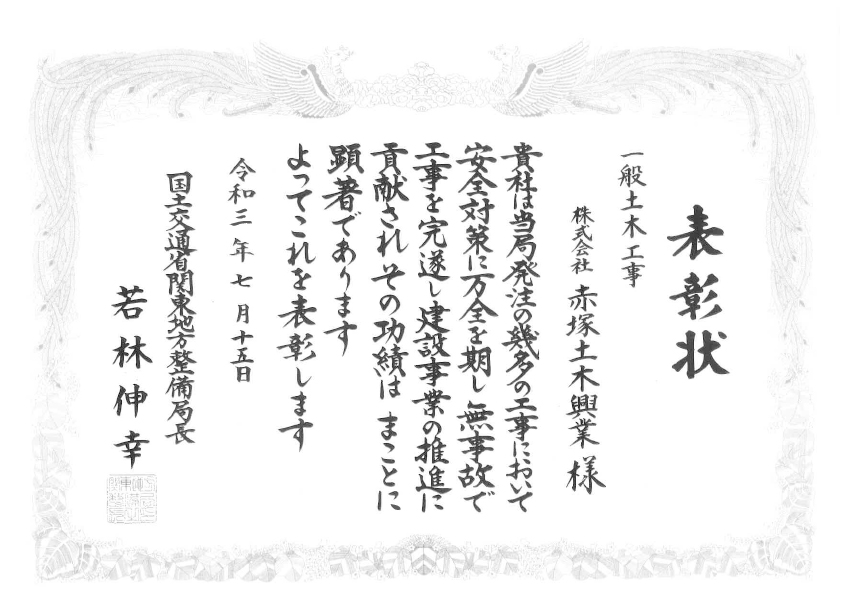 表彰状
一般土木工事
株式会社 赤塚土木興業 様
貴社は当局発注の幾多の工事において
安全対策に万全を期し無事故で
工事を完遂し建設事業の推進に
貢献されその功績は まことに
顕著であります
よってこれを表彰します
令和三年七月十五日
国土交通省関東地方整備局長
若林伸幸